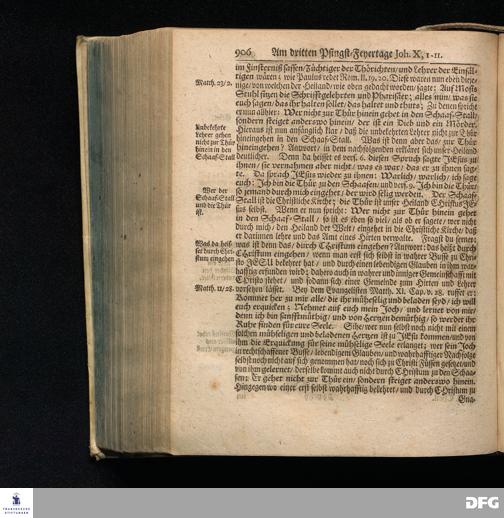 906 Am dritten Pfingst-Feyertage Joh. X, 1-11.
im Finsterniß sassen/ Züchtiger der Thörichten/ und Lehrer der Einfäl-
tigen wären: wie Paulus redet Röm. II. 19. 20. Diese waren nun eben dieje-
Matth. 23/2. nige/ von welchen der Heiland/ wie oben gedacht worden/ sagte: Auf Mosis
Stuhl sitzen die Schrifftgelehrten und Pharisäer; alles nun/ was sie
euch sagen/ das ihr halten sollet/ das haltet und thuts; Zu denen spricht
er nun allhier: Wer nicht zur Thür hinein gehet in den Schaaf-Stall/
sondern steiget anderswo hinein/ der ist ein Dieb und ein Mörder.
Unbekehrte Hieraus ist nun anfänglich klar/ daß die unbekehrten Lehrer nicht zur Thür
Lehrer gehen hineingehen in den Schaaf-Stall. Was ist denn aber das/ zur Thür
nicht zur Thür hineingehen? Antwort/ in dem nachfolgenden erkläret sich unser Heiland
hinein in den deutlicher. Denn da heisset es vers. 6. diesen Spruch sagte JEsus zu
Schaaf-Stall ihnen/ sie vernahmen aber nicht/ was es war/ das er zu ihnen sag-
te. Da sprach JEsus wieder zu ihnen: Warlich/ warlich/ ich sage
euch: Ich bin die Thür zu den Schaafen/ und vers. 9. Ich bin die Thür:
Wer der so jemand durch mich eingehet/ der wird selig werden. Der Schaaf-
Schaaf-Stall Stall ist die Christliche Kirche; die Thür ist unser Heiland Christus JE-
und die Thür sus selbst. Wenn er nun spricht: Wer nicht zur Thür hinein gehet
ist. in den Schaaf-Stall/ so ist es eben so viel/ als ob er sagte/ wer nicht
durch mich/ den Heiland der Welt/ eingehet in die Christliche Kirche/ daß
er darinnen lehre und das Amt eines Hirten verwalte. Fragst du ferner:
Was da heis- was ist denn das/ durch Christum eingehen? Antwort: das heißt durch
se: durch Chri- Christum eingehen/ wenn man erst sich selbst in wahrer Busse zu Chri-
stum eingehen sto JESU bekehret hat/ und durch einen lebendigen Glauben in ihm war-
hafftig erfunden wird; dahero auch in wahrer und inniger Gemeinschafft mit
Christo stehet/ und sodann sich einer Gemeinde zum Hirten und Lehrer
Matth. 11/28. vorsetzen lässet. Bey dem Evangelisten Matth. XI. Cap. v. 28. ruffet er:
Kommet her zu mir alle/ die ihr mühselig und beladen seyd/ ich will
euch erquicken; Nehmet auf euch mein Joch/ und lernet von mir/
denn ich bin sanfftmüthig/ und von Hertzen demüthig/ so werdet ihr
Ruhe finden für eure Seele. Sihe/ wer nun selbst noch nicht mit einem
solchen mühseligen und beladenen Hertzen ist zu JEsu kommen/ und von
ihm die Erquickung für seine mühselige Seele erlanget; wer sein Joch
in rechtschaffener Busse/ lebendigem Glauben/ und wahrhafftiger Nachfolge
selbst noch nicht auf sich genommen hat/ noch sich zu Christi Füssen gesetzet/ und
von ihm gelernet/ derselbe kommt auch nicht durch CHristum zu den Schaa-
fen: Er gehet nicht zur Thür ein/ sondern steiget anderswo hinein.
Hingegen wo einer erst selbst wahrhafftig bekehret/ und durch CHristum zu
FRANCKESCHE STIFTUNGEN
DFG